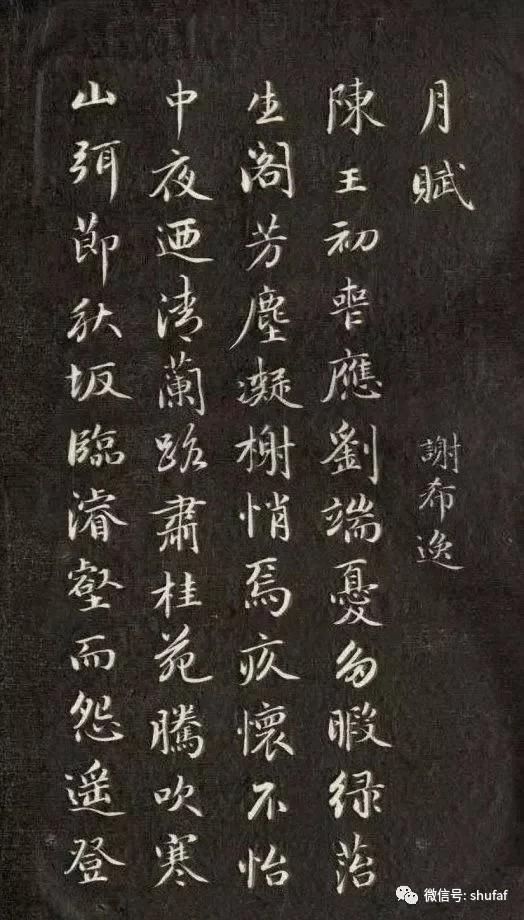 月賦
謝希逸
陳王初喪應劉端憂多暇綠苔
生閣芳塵凝榭悄焉疚懷不怡
中夜迺清蘭路肅桂苑騰吹寒
山弭節秋坂臨濬壑而怨遥登
微信号: shufaf